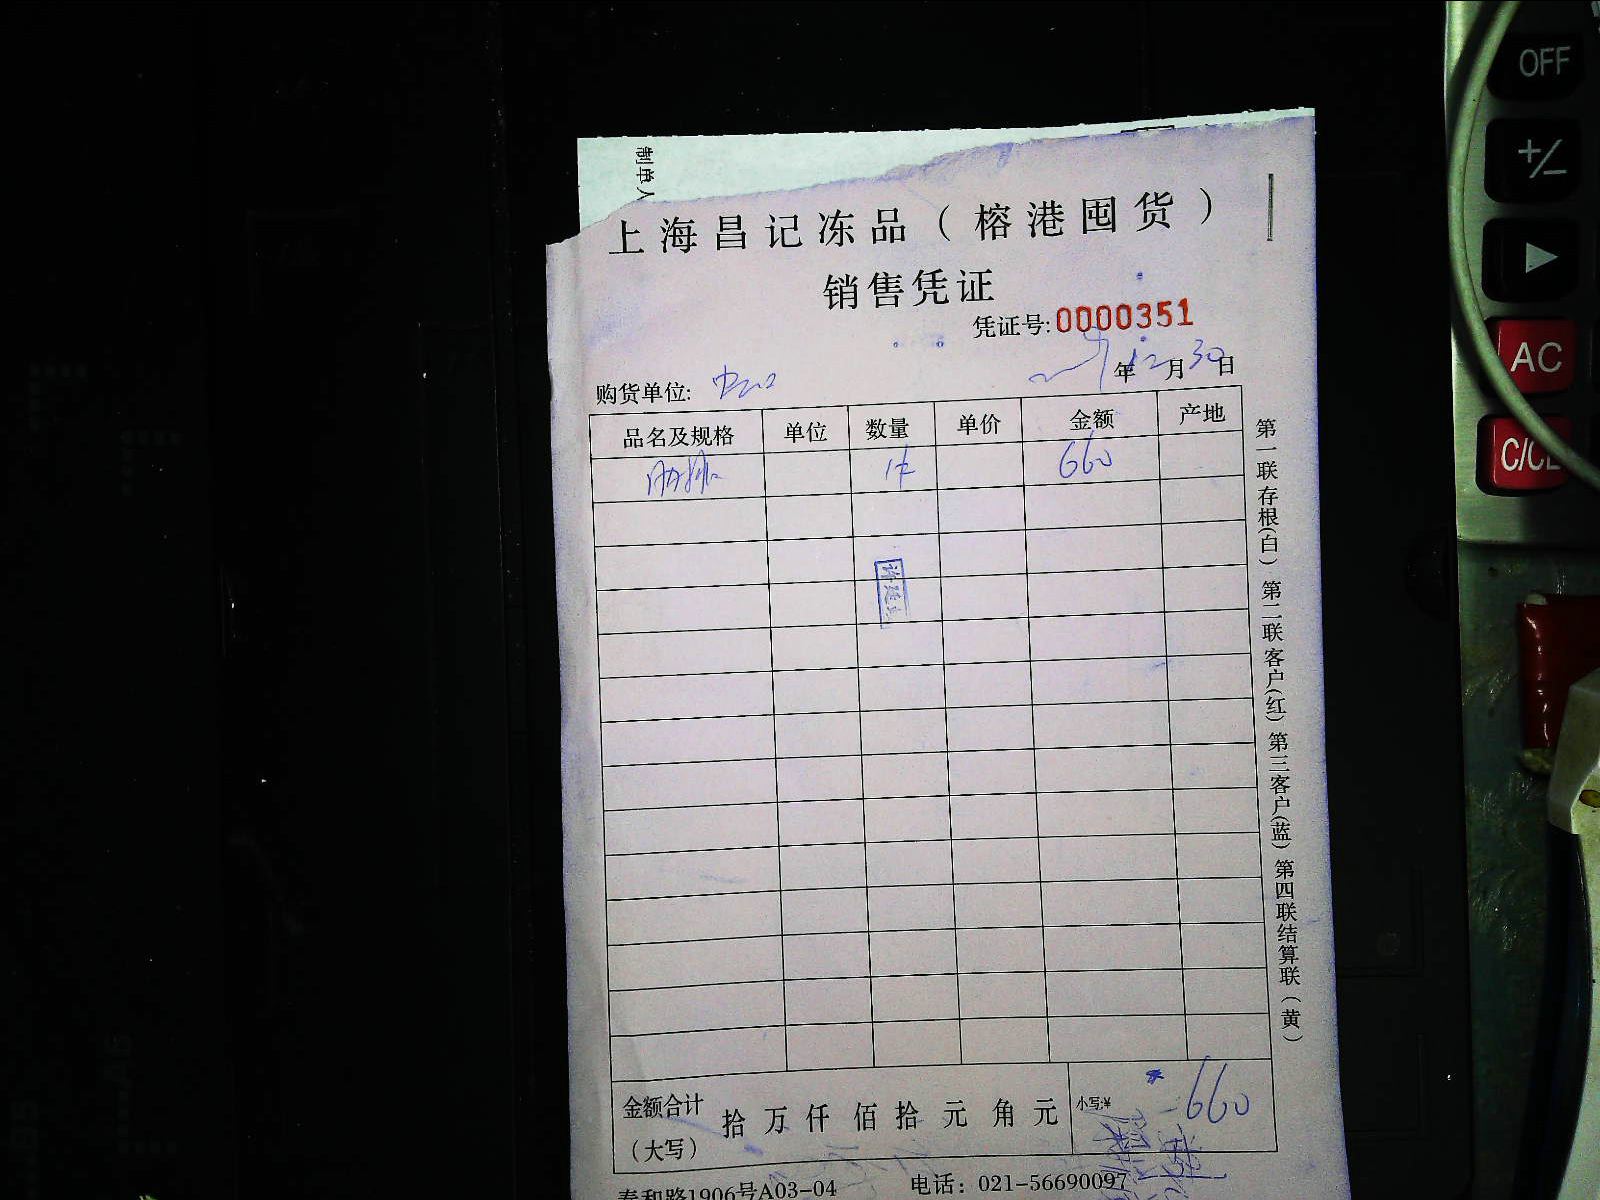 制单人
上海昌记冻品（榕港囤货）
销售凭证
凭证号:0000351
年12月30日
购货单位:
品名及规格 单位 数量 单价 金额 产地
肋排 1件 660
金额合计（大写） 拾 万 仟 佰 拾 元 角 元 小写:¥ 660
泰和路1906号A03-04 电话：021-56690097
第一联存根(白) 第二联客户(红) 第三客户(蓝) 第四联结算联(黄)
OFF
+/−
▶
AC
C/CE